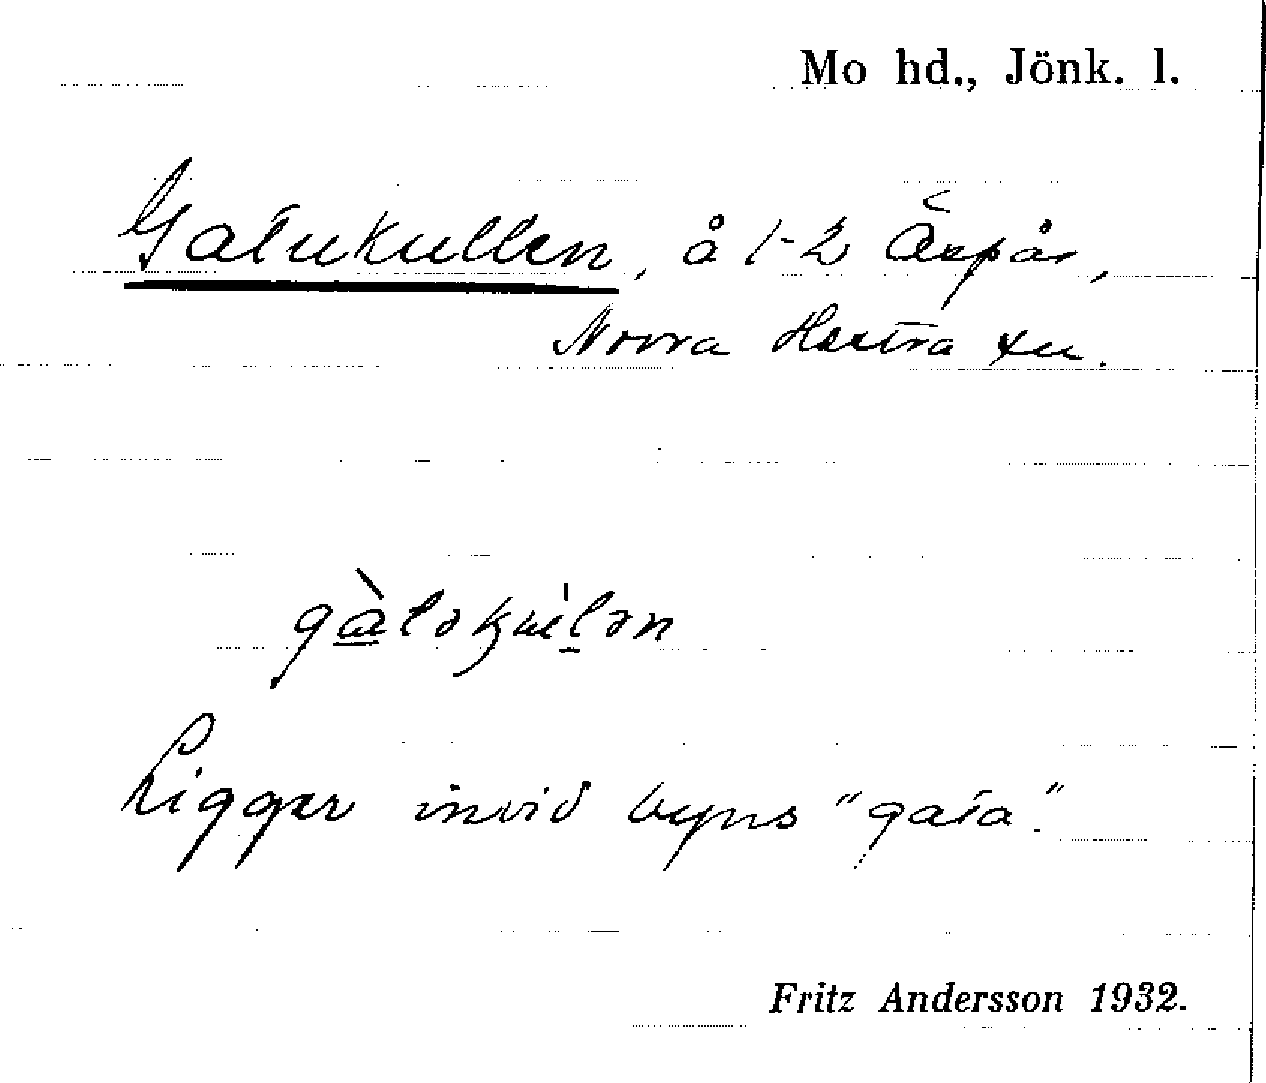 Mo hd., Jönk. l.
Gatukullen, å 1-2 Äspås,
Norra Hestra sn.
gàtəkúlən
Ligger invid byns "gata".
Fritz Andersson 1932.